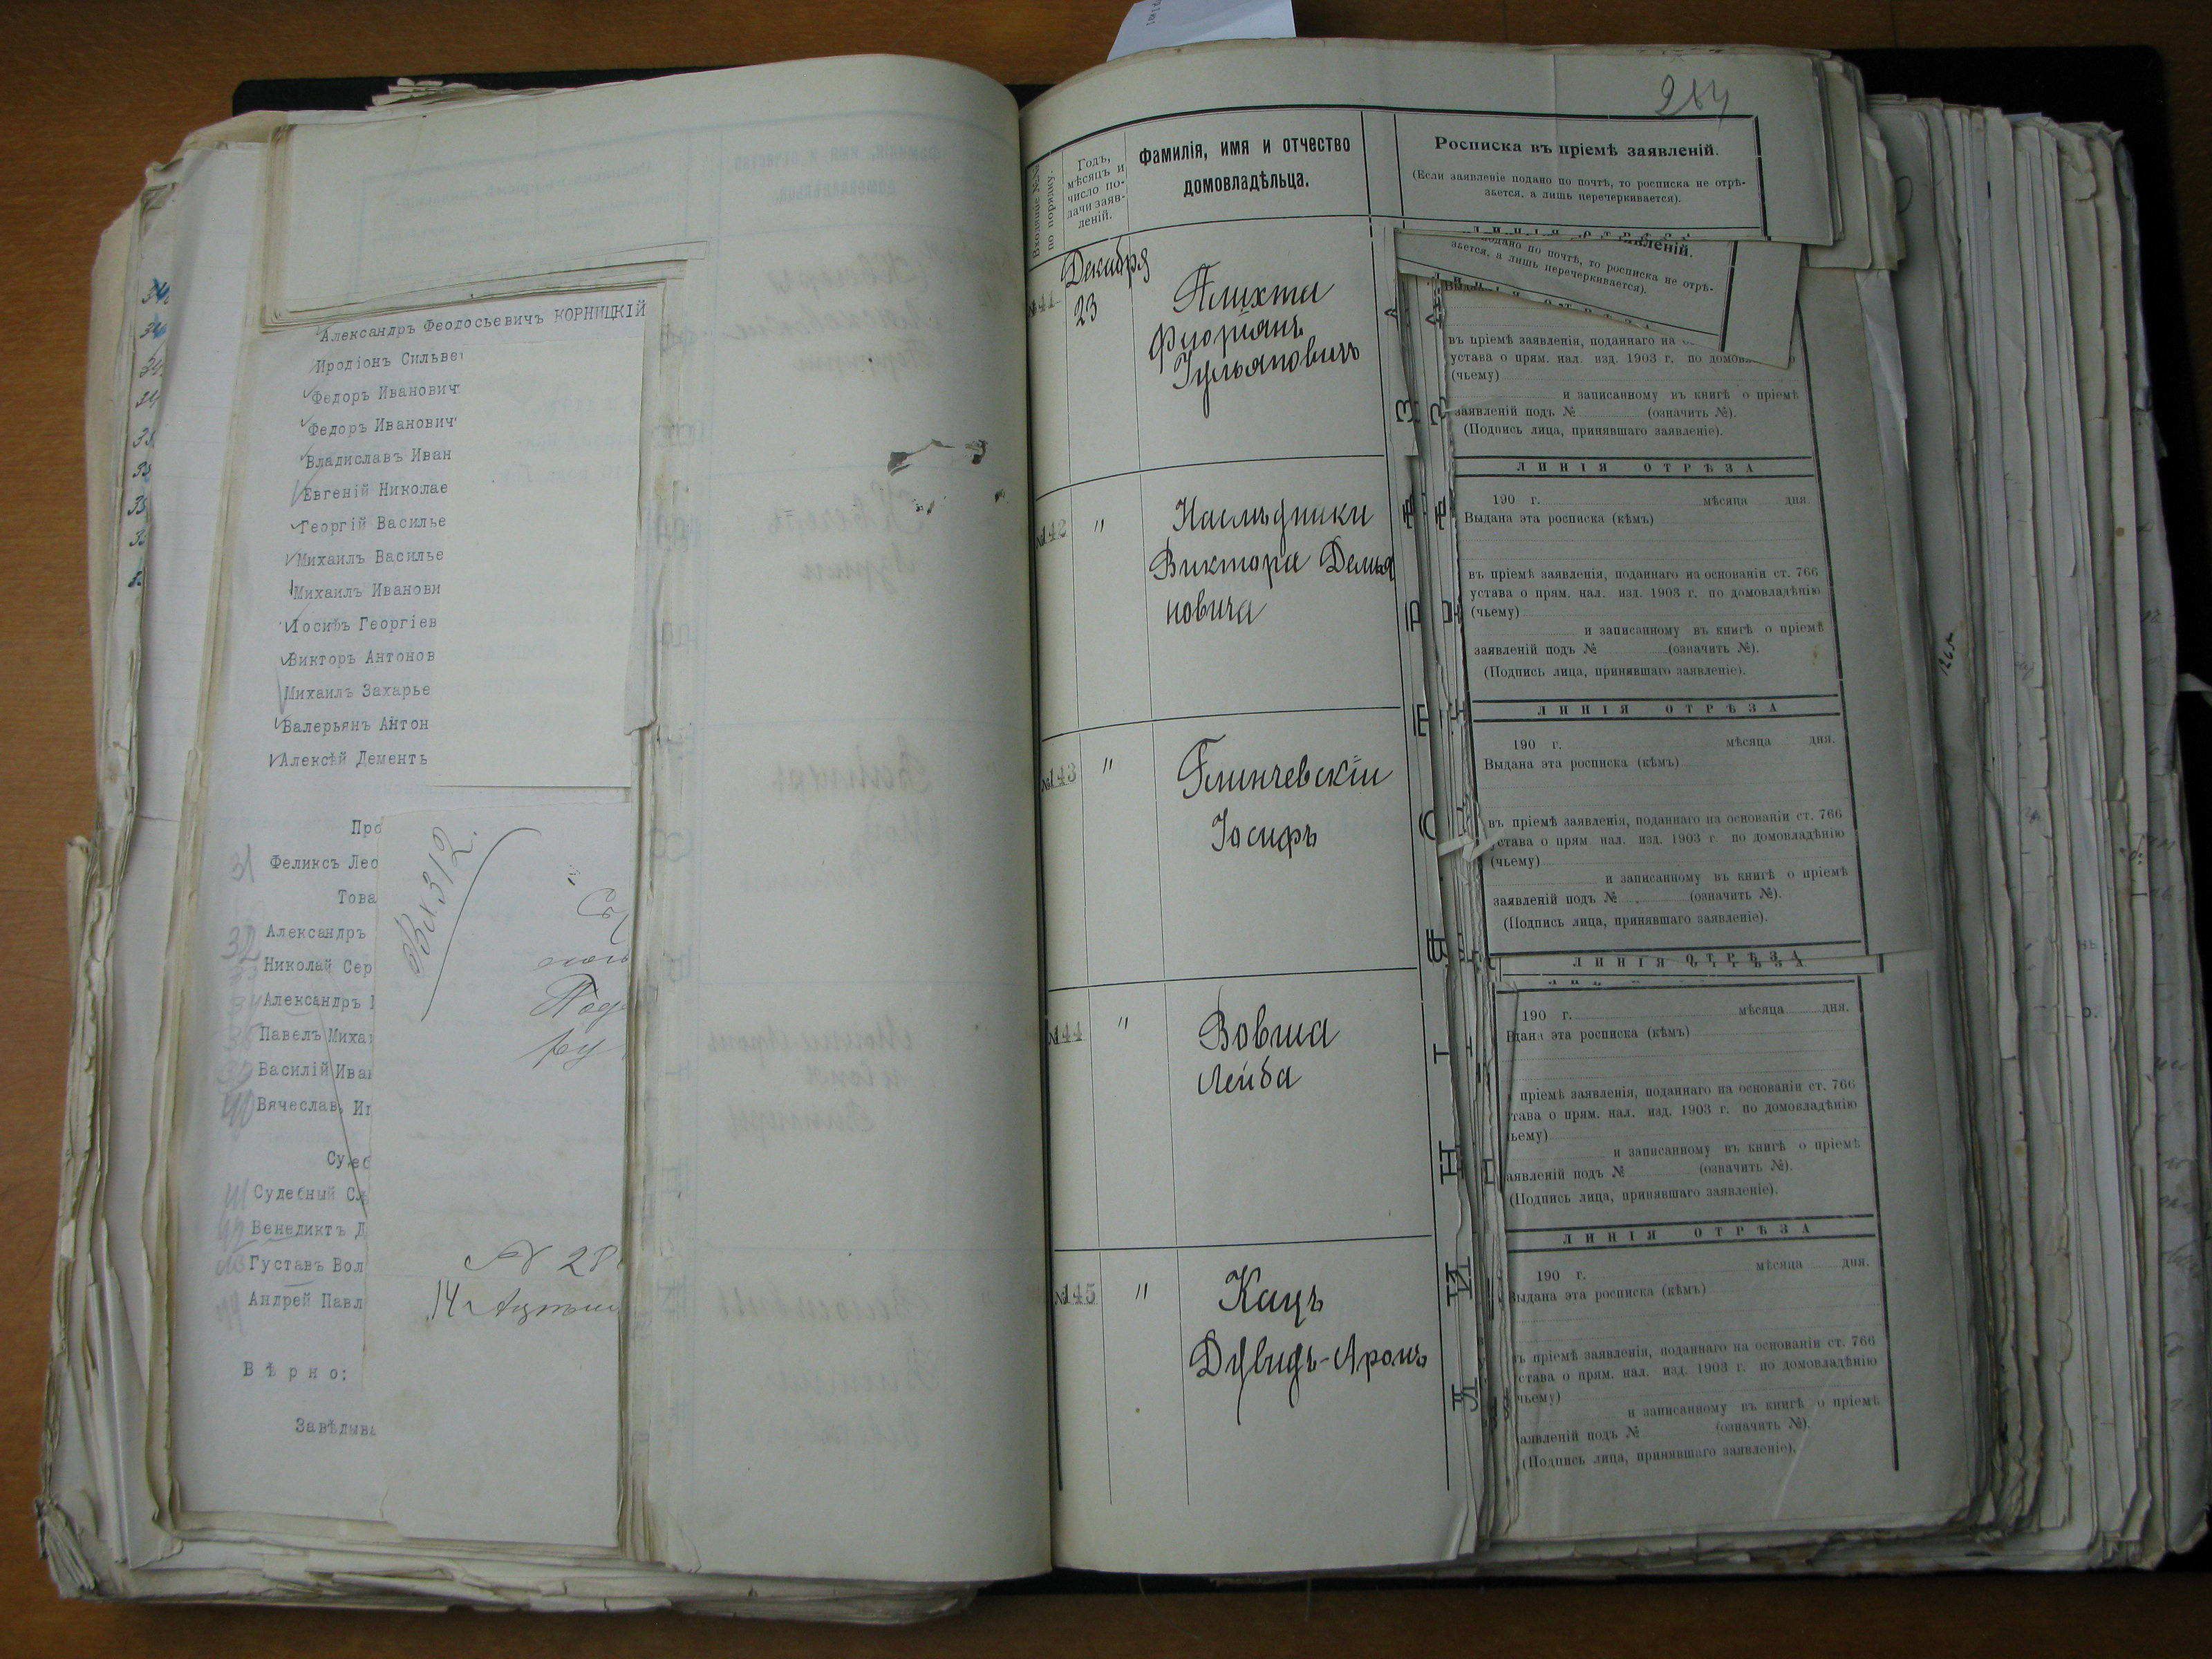 Александръ Феодосьевичъ КОРНИЦКІЙ
Иродіонъ Сильвес
Федоръ Иванович
Федоръ Иванович
Владиславъ Иван
Евгеній Николае
Георгій Василье
Михаилъ Василье
Михаилъ Иванови
Іосифъ Георгіев
Викторъ Антонов
Михаилъ Захарье
Валерьянъ Антон
Алексѣй Дементь
Про
31 Феликсъ Лео
Това
32 Александръ
Николай Сер
34 Александръ
Павелъ Миха
Василій Иван
40 Вячеслав
Судеб
41 Судебный Сл
Венедиктъ Д
Густавъ Вол
44 Андрей Павл
Вѣрно:
Завѣдыва
Вх 312.
264
Входящіе №№ по порядку.
Годъ,
мѣсяцъ и
число по-
дачи заяв-
леній.
Фамилія, имя и отчество
домовладѣльца.
Росписка въ пріемѣ заявленій.
(Если заявленіе подано по почтѣ, то росписка не отрѣ-
зьется, а лишь перечеркивается).
ЛИНІЯ ОТРѢЗА
леній.
подано по почтѣ, то росписка не отрѣ-
зьется, а лишь перечеркивается).
№141
Декабря
23
Плихта
Флоріанъ
Іульяновичъ
въ пріемѣ заявленія, поданнаго на
устава о прям. нал. изд. 1903 г. по домов
(чьему)
и записанному въ книгѣ о пріемѣ
заявленій подъ № (означить №).
(Подпись лица, принявшаго заявленіе).
ЛИНІЯ ОТРѢЗА
№142 "
Наслѣдники
Виктора Демья
новича
190 г. мѣсяца дня.
Выдана эта росписка (кѣмъ)
въ пріемѣ заявленія, поданнаго на основаніи ст. 766
устава о прям. нал. изд. 1903 г. по домовладѣнію
(чьему)
и записанному въ книгѣ о пріемѣ
заявленій подъ № (означить №).
(Подпись лица, принявшаго заявленіе).
ЛИНІЯ ОТРѢЗА
№143 "
Глинчевскій
Іосифъ
190 г. мѣсяца дня.
Выдана эта росписка (кѣмъ)
въ пріемѣ заявленія, поданнаго на основаніи ст. 766
устава о прям нал. изд. 1903 г. по домовладѣнію
(чьему)
и записанному въ книгѣ о пріемѣ
заявленій подъ № (означить №).
(Подпись лица, принявшаго заявленіе).
ЛИНІЯ ОТРѢЗА
№144 "
Вовша
Лейба
190 г. мѣсяца дня.
дана эта росписка (кѣмъ)
пріемѣ заявленія, поданнаго на основаніи ст. 766
тава о прям. нал. изд. 1903 г. по домовладѣнію
ьему)
и записанному въ книгѣ о пріемѣ
аявленій подъ № (означить №).
(Подпись лица, принявшаго заявленіе).
ЛИНІЯ ОТРѢЗА
№145 "
Кацъ
Дувидъ-Аронъ
190 г. мѣсяца дня.
Выдана эта росписка (кѣмъ)
ъ пріемѣ заявленія, поданнаго на основаніи ст. 766
става о прям. нал. изд. 1903 г. по домовладѣнію
чьему)
и записанному въ книгѣ о пріемѣ
аявленій подъ № (означить №).
(Подпись лица, принявшаго заявленіе).